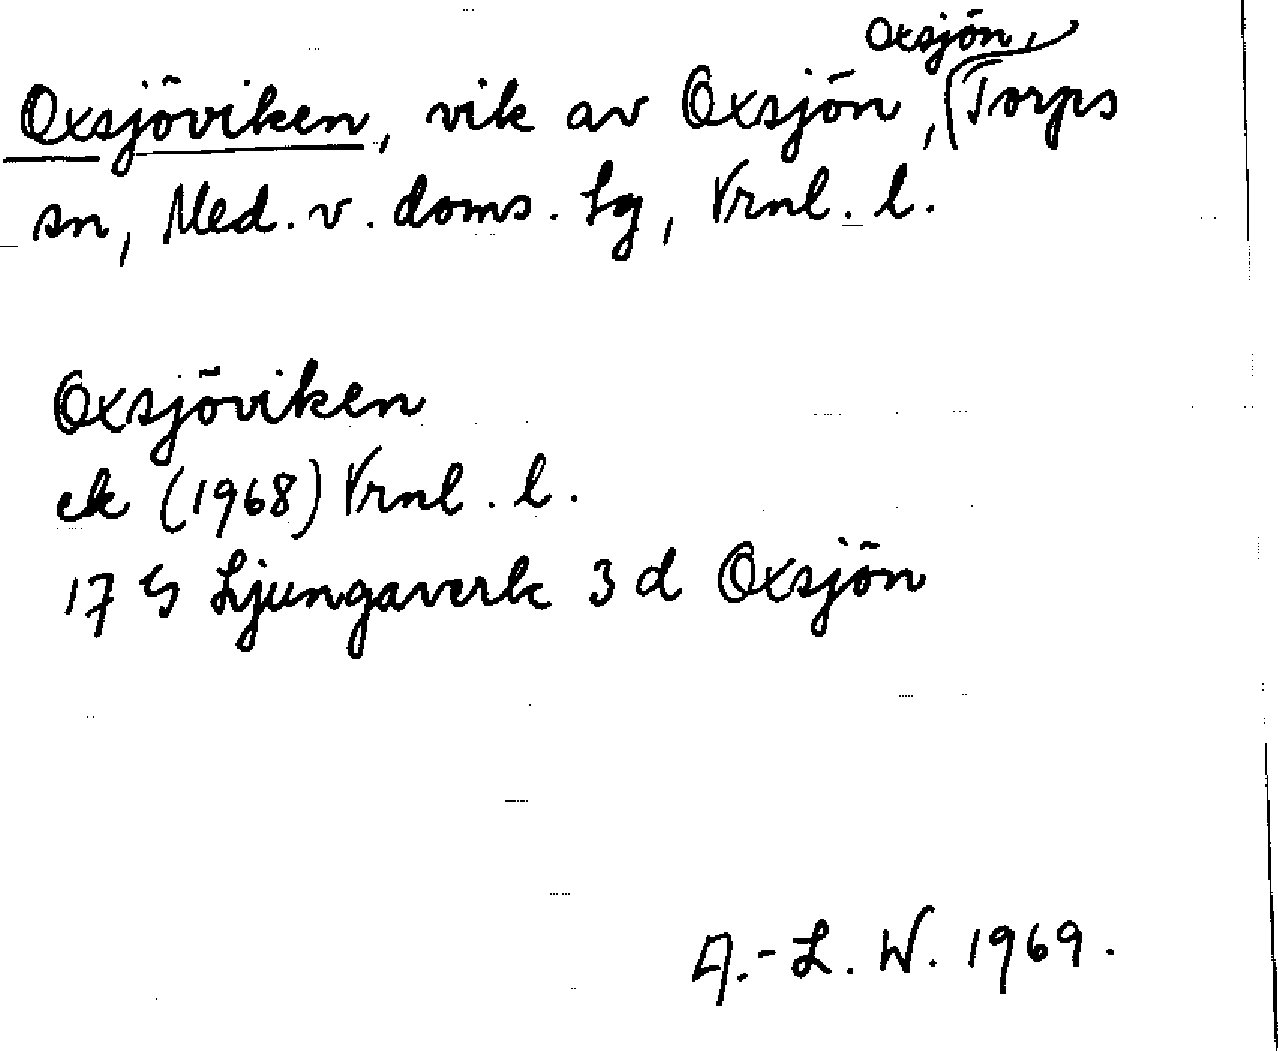 Oxsjöviken, vik av Oxsjön, Oxsjön, Torps
sn, Med. v. doms. lg, Vrnl. l.
Oxsjöviken
ek (1968) Vrnl. l.
17 G Ljungaverk 3 d Oxsjön
A.-L. W. 1969.